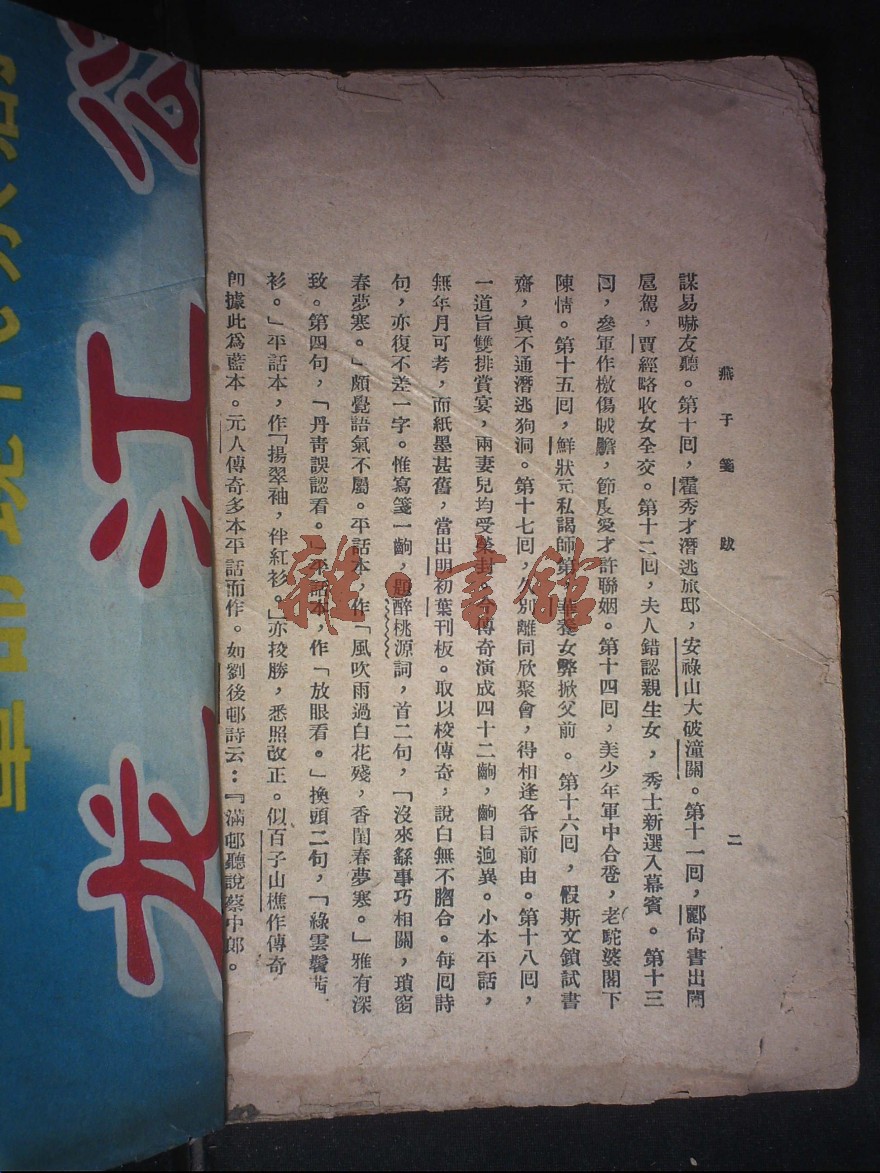 燕子箋 跋 二
謀易嚇友聽。第十回，霍秀才潛逃旅邸，安祿山大破潼關。第十一回，酈尙書出閫
扈駕，賈經略收女全交。第十二回，夫人錯認親生女，秀士新選入幕賓。第十三
回，參軍作檄傷賊膽，節度愛才許聯姻。第十四回，美少年軍中合卺，老駝婆閣下
陳情。第十五回，鮮狀元私謁師第，華養女弊掀父前。第十六回，假斯文鎖試書
齋，眞不通潛逃狗洞。第十七回，久別離同欣聚會，得相逢各訴前由。第十八回，
一道旨雙排賞宴，兩妻兒均受榮封。今傳奇演成四十二齣，齣目迥異。小本平話，
無年月可考，而紙墨甚舊，當出明初葉刊板。取以校傳奇，說白無不脗合。每回詩
句，亦復不差一字。惟寫箋一齣，題醉桃源詞，首二句，「沒來繇事巧相關，瑣窗
春夢寒。」頗覺語氣不屬。平話本，作「風吹雨過白花殘，香閨春夢寒。」雅有深
致。第四句，「丹靑誤認看。」平話本，作「放眼看。」換頭二句，「綠雲鬢，茜
衫。」平話本，作「揚翠袖，伴紅衫。」亦挍勝，悉照改正。似百子山樵作傳奇，
卽據此爲藍本。元人傳奇多本平話而作。如劉後邨詩云：『滿邨聽說蔡中郞。
雜·書館
龙江